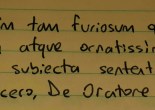 tam furiosum
atque ornatissim
subiecta sentent
cero, De Oratore